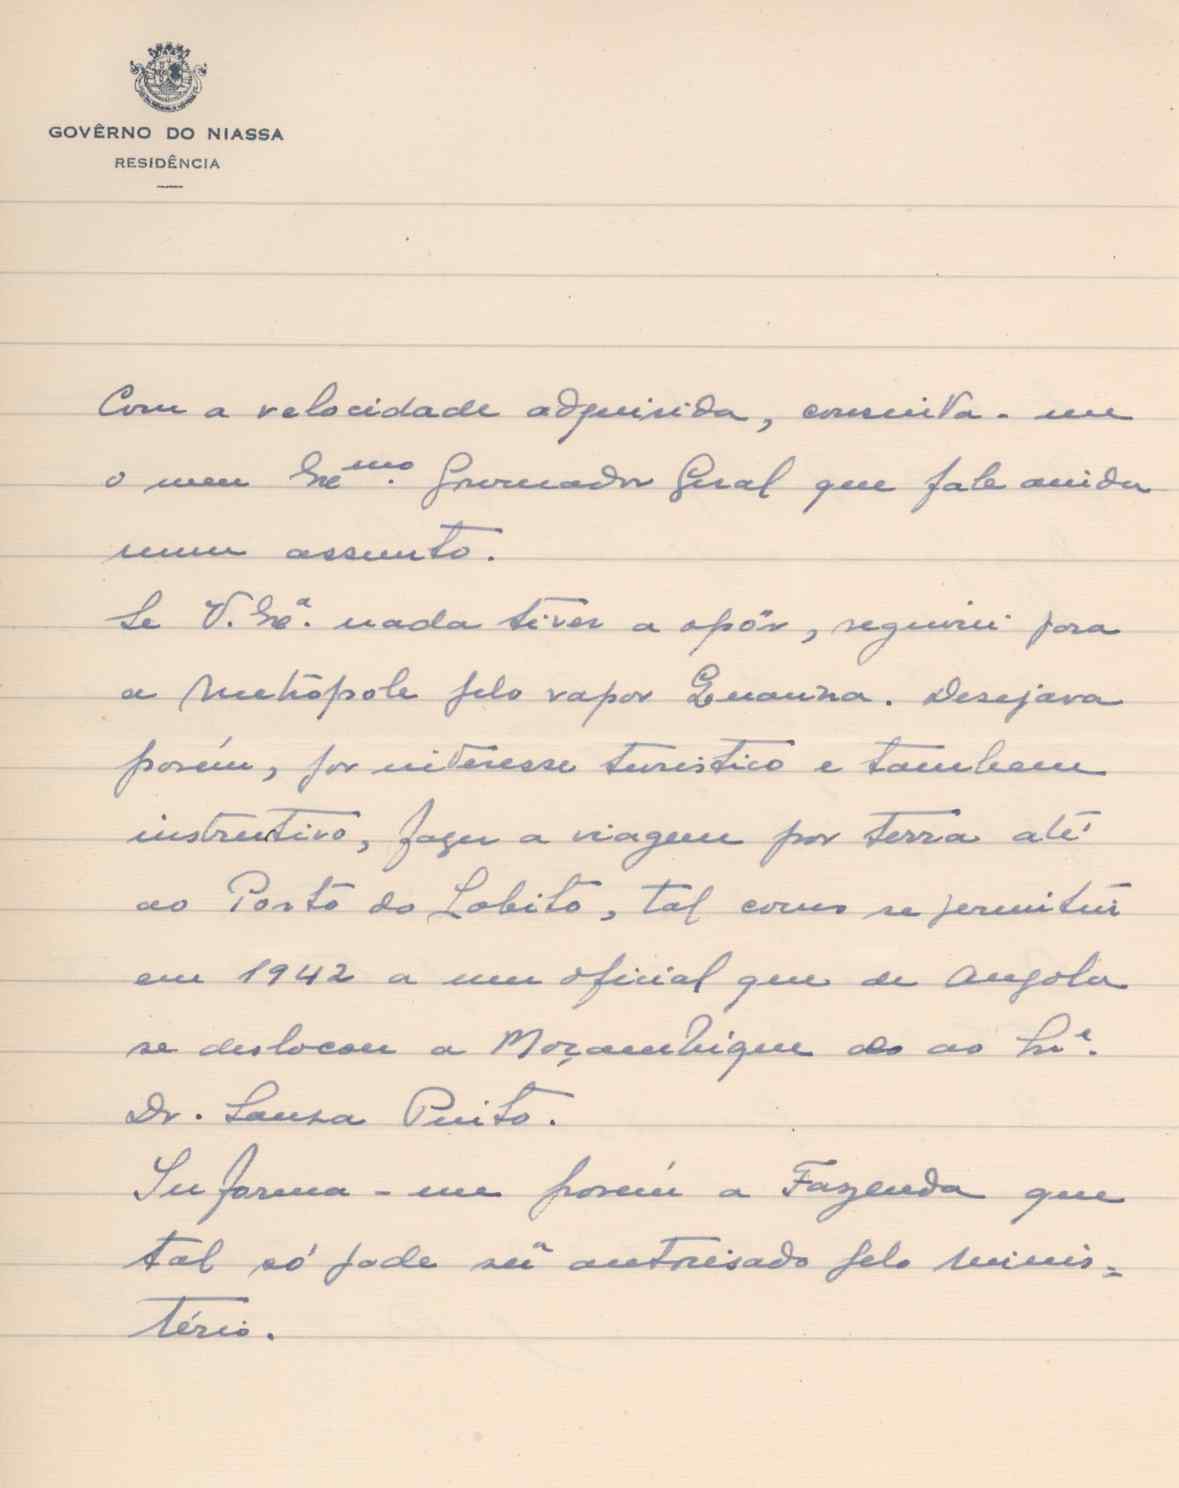 GOVÊRNO DO NIASSA
RESIDÊNCIA
Com a velocidade adquirida, consinta-me
o meu Exᵐᵒ. Governador Geral que fale ainda
num assunto.
Se V. Exª. nada tiver a opôr, seguirei para
a Metrópole pelo vapor Quanza. Desejava
porém, por interesse turistico e tambem
instrutivo, fazer a viagem por terra até
ao Porto do Lobito, tal como se permitiu
em 1942 a um oficial que de Angola
se deslocou a Moçambique e ao Sr.
Dr. Sousa Pinto.
Informa-me porém a Fazenda que
tal só pode ser autorisado pelo Minis=
tério.